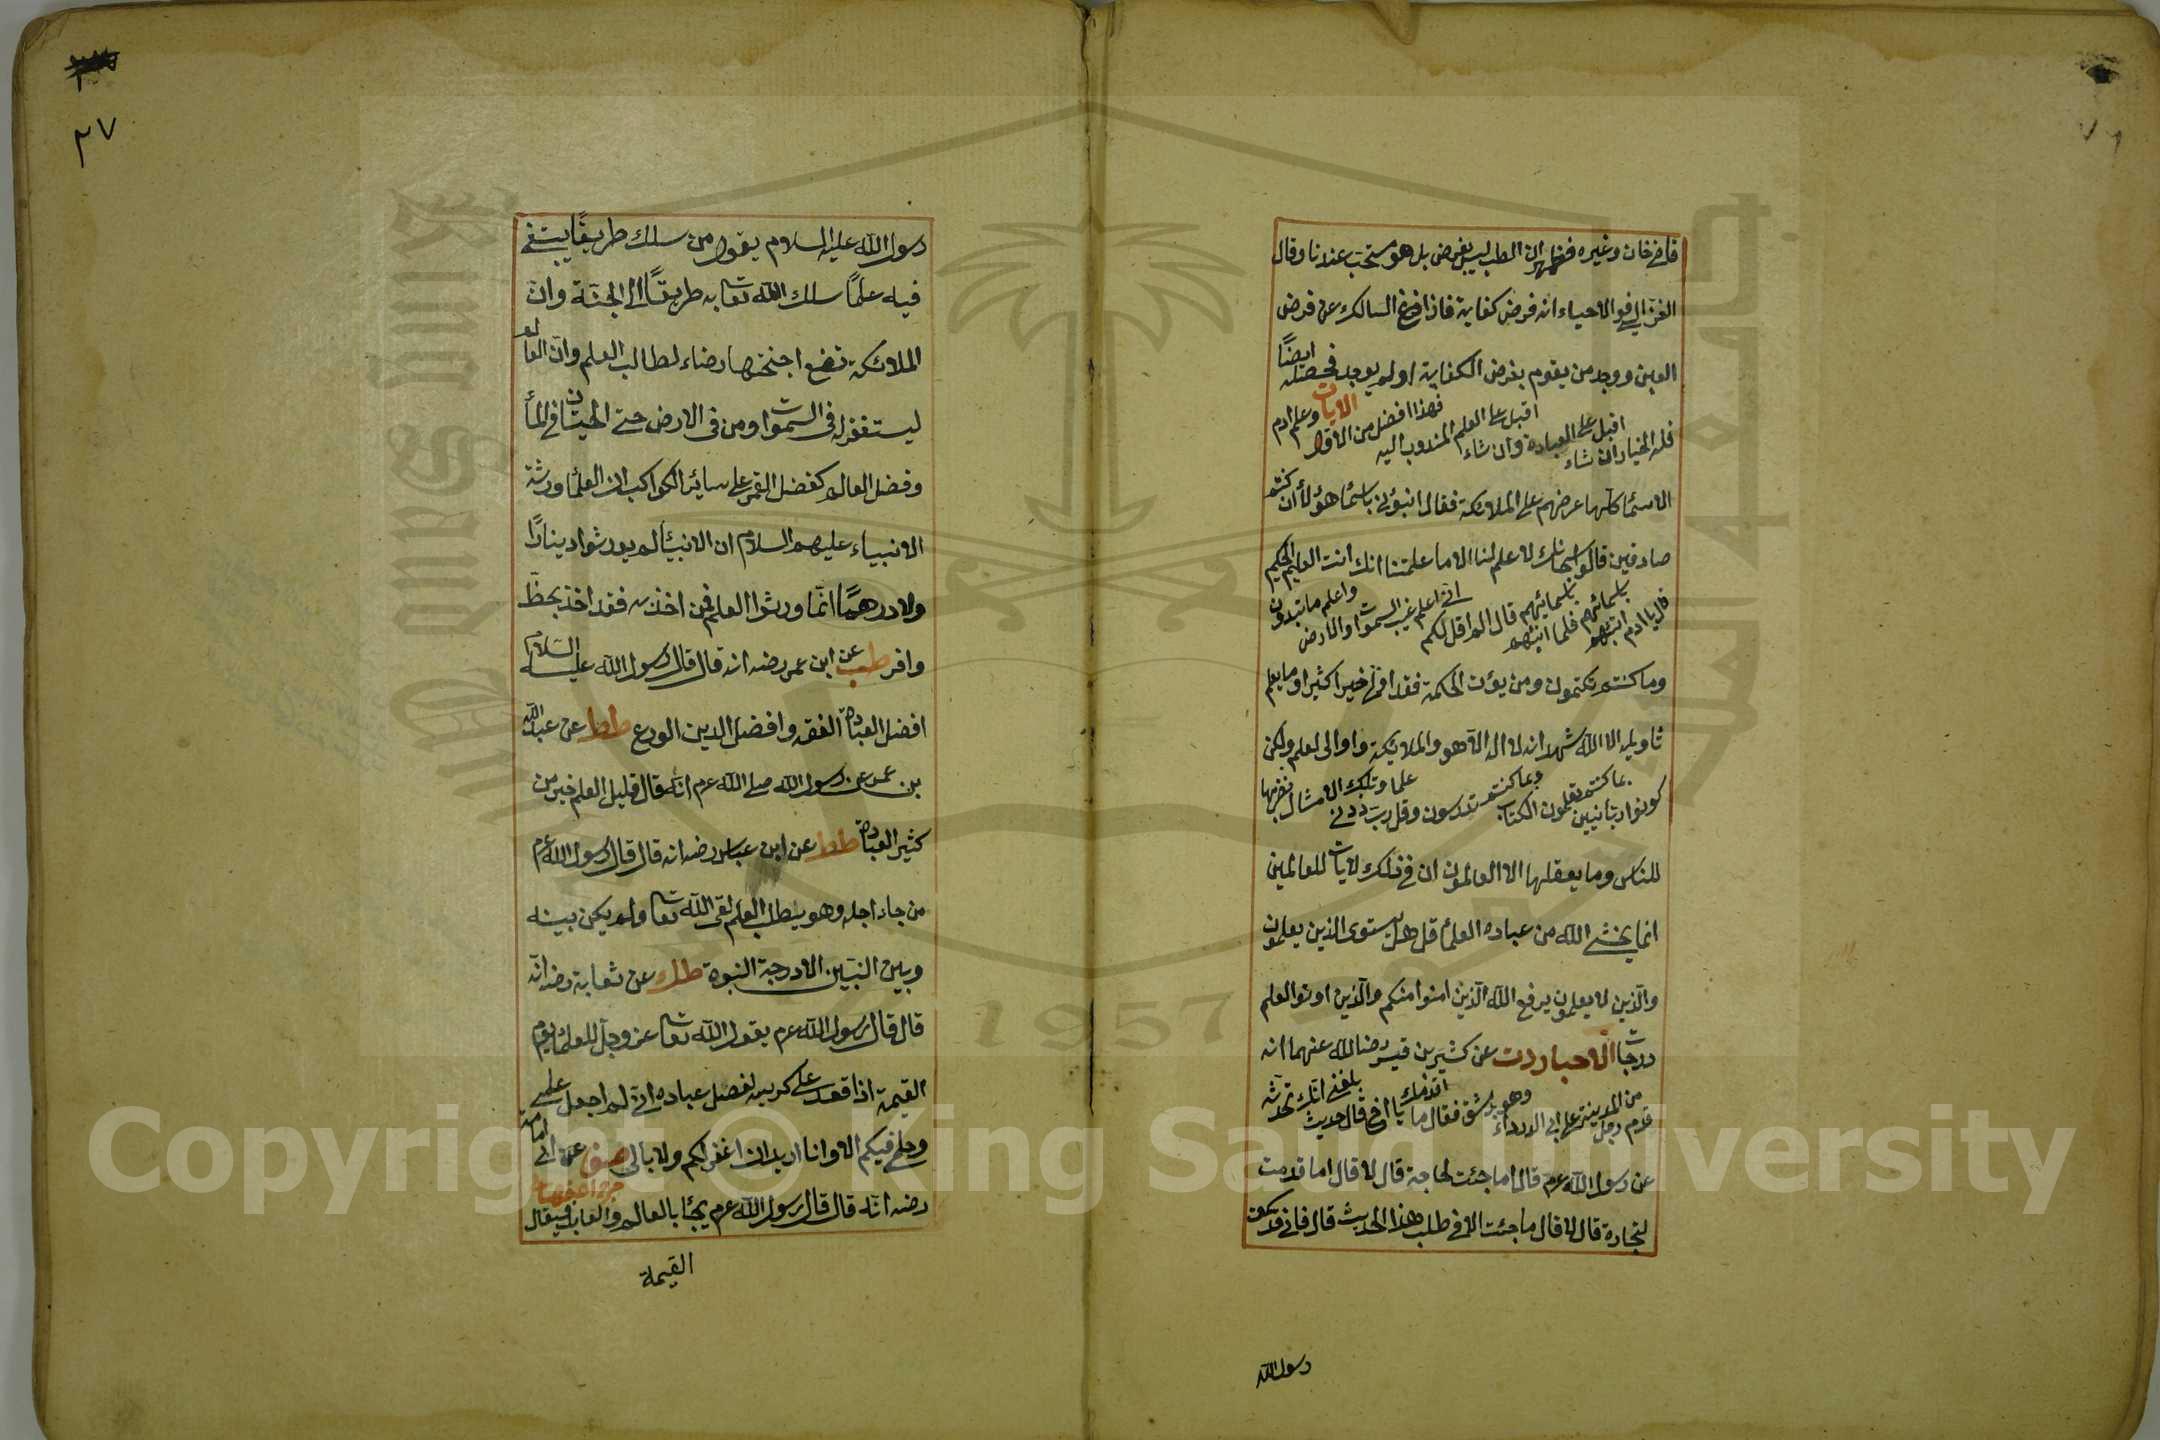 قاضيخان وغيره فظهر ان الطب ليس بفرض بل هو مستحب عندنا وقال
الغزالي في الاحياء انه فرض كفاية فاذا فرغ السالك عن فرض
العين ووجد من يقوم بفرض الكفاية او لم يوجد فحصله ايضا
فله الخيار ان شاء اقبل على العبادة وان شاء اقبل على العلم المندوب اليه فهذا افضل من الاول الايات وعلم ادم
الاسماء كلها عرضهم على الملائكة فقال انبؤني باسماء هؤلاء ان كنتم
صادقين قالوا سبحانك لا علم لنا الا ما علمتنا انك انت العليم الحكيم
قال يا ادم انبئهم باسمائهم فلما انبئهم باسمائهم قال الم اقل لكم اني اعلم غيب السموات والارض واعلم ما تبدون
وما كنتم تكتمون ومن يؤت الحكمة فقد اوتي خيرا كثيرا وما يعلم
تاويله الا الله شهد انه لا اله الا هو والملائكة واولى العلم ولكن
كونوا ربانيين بما كنتم تعلمون الكتاب وبما كنتم تدرسون وقل رب زدني علما وتلك الامثال نضربها
للناس وما يعقلها الا العالمون ان في ذلك لايات للعالمين
انما يخشى الله من عباده العلماء قل هل يستوى الذين يعلمون
والذين لا يعلمون يرفع الله الذين امنوا منكم والذين اوتوا العلم
درجات الاخبار دت عن كثير بن قيس رضى الله عنهما انه
قدم رجل من المدينة على ابي الدرداء وهو بدمشق فقال ما اقدمك يا اخي قال حديث بلغني انك تحدثه
عن رسول الله عم قال اما جئت لحاجة قال لا قال اما قدمت
لتجارة قال لا قال ما جئت الا في طلب هذا الحديث قال فاني قد سمعت
رسول الله
٢٧
رسول الله عليه السلام يقول من سلك طريقا يبتغي
فيه علما سلك الله تعا به طريقا الى الجنة وان
الملائكة تضع اجنحتها رضاء لطالب العلم وان العالم
ليستغفر له في السموات ومن في الارض حتى الحيتان في الماء
وفضل العالم كفضل القمر على سائر الكواكب ان العلماء ورثة
الانبياء عليهم السلام ان الانبياء لم يورثوا دينارا
ولا درهما انما ورثوا العلم فمن اخذ به فقد اخذ بحظ
وافر طب عن ابن عمر رضه انه قال قال رسول الله عليه السلام
افضل العبادة الفقه وافضل الدين الورع طط عن عبد الله
بن عمر عن رسول الله صلى الله عم انه قال قليل العلم خير من
كثير العبادة طط عن ابن عباس رضه انه قال قال رسول الله عم
من جاء اجله وهو يطلب العلم لقى الله تعا ولم يكن بينه
وبين النبيين الا درجة النبوة طك عن ثعابة رضه انه
قال قال رسول الله عم يقول الله تعا عز وجل للعلماء يوم
القيمة اذا قعد على كرسيه لفصل عباده اني لم اجعل علمي
وحلمي فيكم الا وانا اريد ان اغفر لكم ولا ابالي صف عن ابي امامة
رضه انه قال قال رسول الله عم يجاء بالعالم والعابد فيقال
القيمة